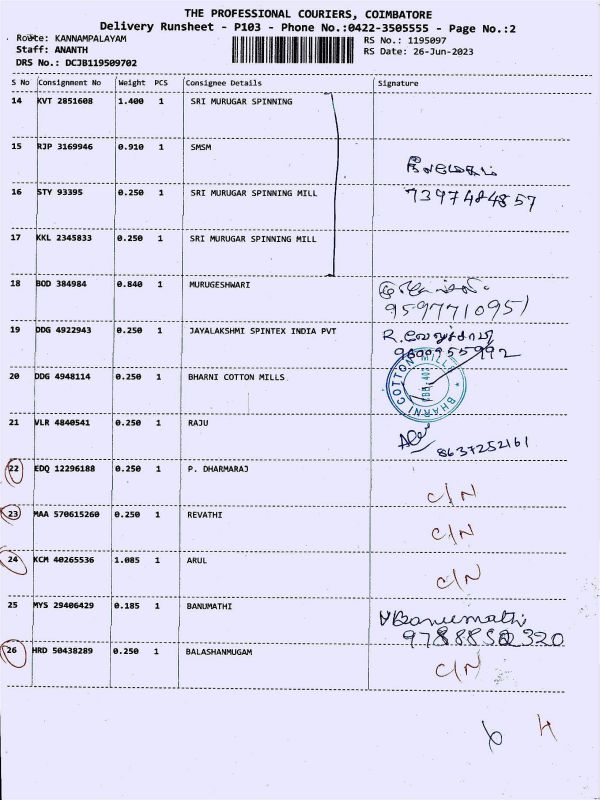 THE PROFESSIONAL COURIERS, COIMBATORE
Delivery Runsheet - P103 - Phone No.:0422-3505555 - Page No.:2
Route: KANNAMPALAYAM
RS No.: 1195097
Staff: ANANTH
RS Date: 26-Jun-2023
DRS No.: DCJB119509702
S No Consignment No Weight PCS Consignee Details Signature
14 KVT 2851608 1.400 1 SRI MURUGAR SPINNING
15 RJP 3169946 0.910 1 SMSM
16 STY 93395 0.250 1 SRI MURUGAR SPINNING MILL
7397484857
17 KKL 2345833 0.250 1 SRI MURUGAR SPINNING MILL
18 BOD 384984 0.840 1 MURUGESHWARI
9597710951
19 DDG 4922943 0.250 1 JAYALAKSHMI SPINTEX INDIA PVT
R. வேலுச்சாமி
9600955992
20 DDG 4948114 0.250 1 BHARNI COTTON MILLS
BHARNI COTTON MILLS
21 VLR 4840541 0.250 1 RAJU
8637252161
22 EDQ 12296188 0.250 1 P. DHARMARAJ
C/N
23 MAA 570615260 0.250 1 REVATHI
C/N
24 KCM 40265536 1.085 1 ARUL
C/N
25 MYS 29406429 0.185 1 BANUMATHI
V Banumathi
9788858320
26 HRD 50438289 0.250 1 BALASHANMUGAM
C/N